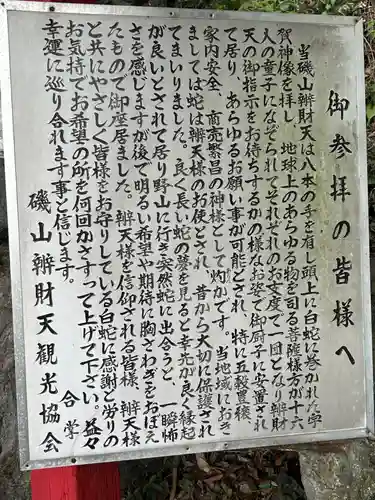 御参拝の皆様へ
当磯山辨財天は八本の手を有し頭上に白蛇に巻かれた宇
賀神像を拝し 地球上のあらゆる物を司る菩薩様方が十六
人の童子になぞられてそれぞれのお支度で一団となり辨財
天の御指示をお待ちするかの様なお姿で御厨子に安置され
て居り、あらゆるお願い事が可能とされ、特に五穀豊穣、
家内安全、商売繁昌の神様として灼かです。当地域におき
ましては蛇は辨天様のお使とされ、昔から大切に保護され
てまいりました。良く長い蛇の夢を見ると幸先が良く縁起
が良いとされて居り野山に行き突然蛇に出合うと、一瞬怖
さを感じますが後で明るい希望や期待に胸さわぎをおぼえ
たもので御座居ました。辨天様を信仰される皆様、辨天様
と共にやさしく皆様をお守りしている白蛇に感謝と労りの
お気持でお希望の所を何回かさすって上げて下さい。益々
幸運に巡り合れます事と信じます。
合学
磯山辨財天観光協会